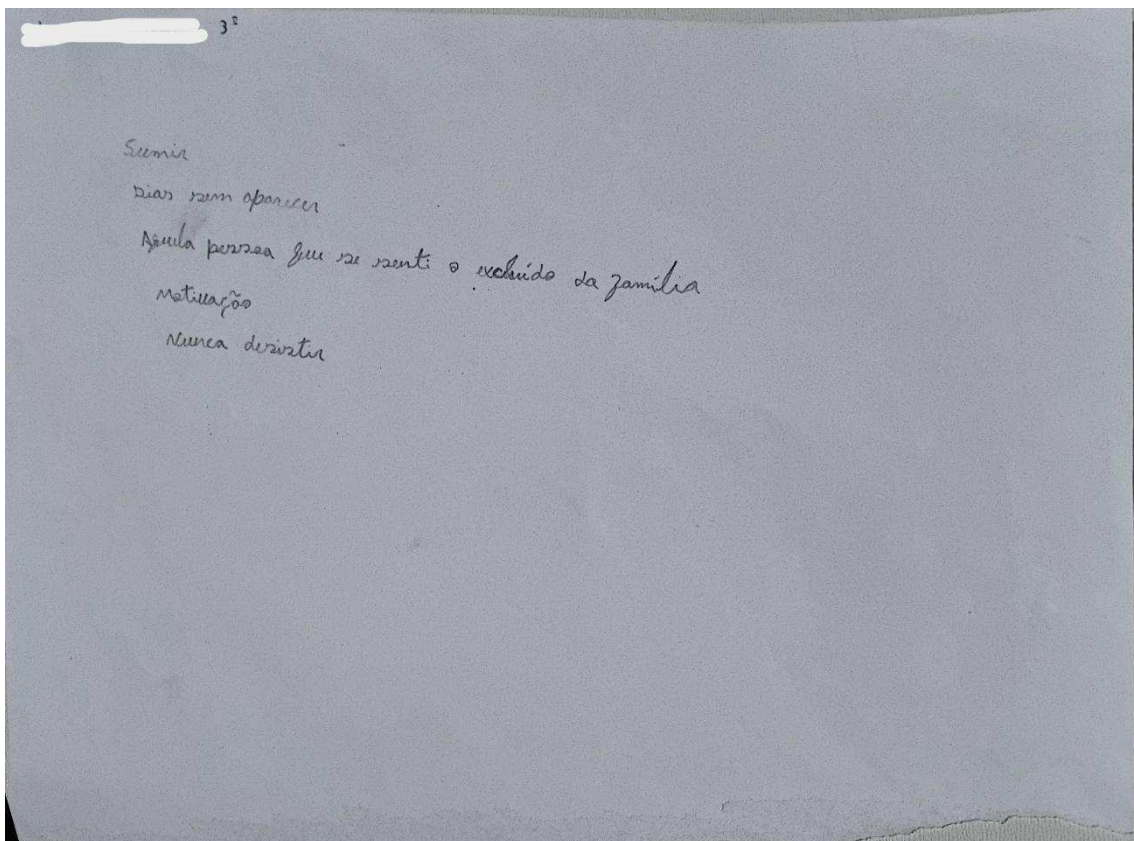 3º
Sumir
Dias sem aparecer
Aquela pessoa que se senti o excluído da família
Motivação
Nunca desistir